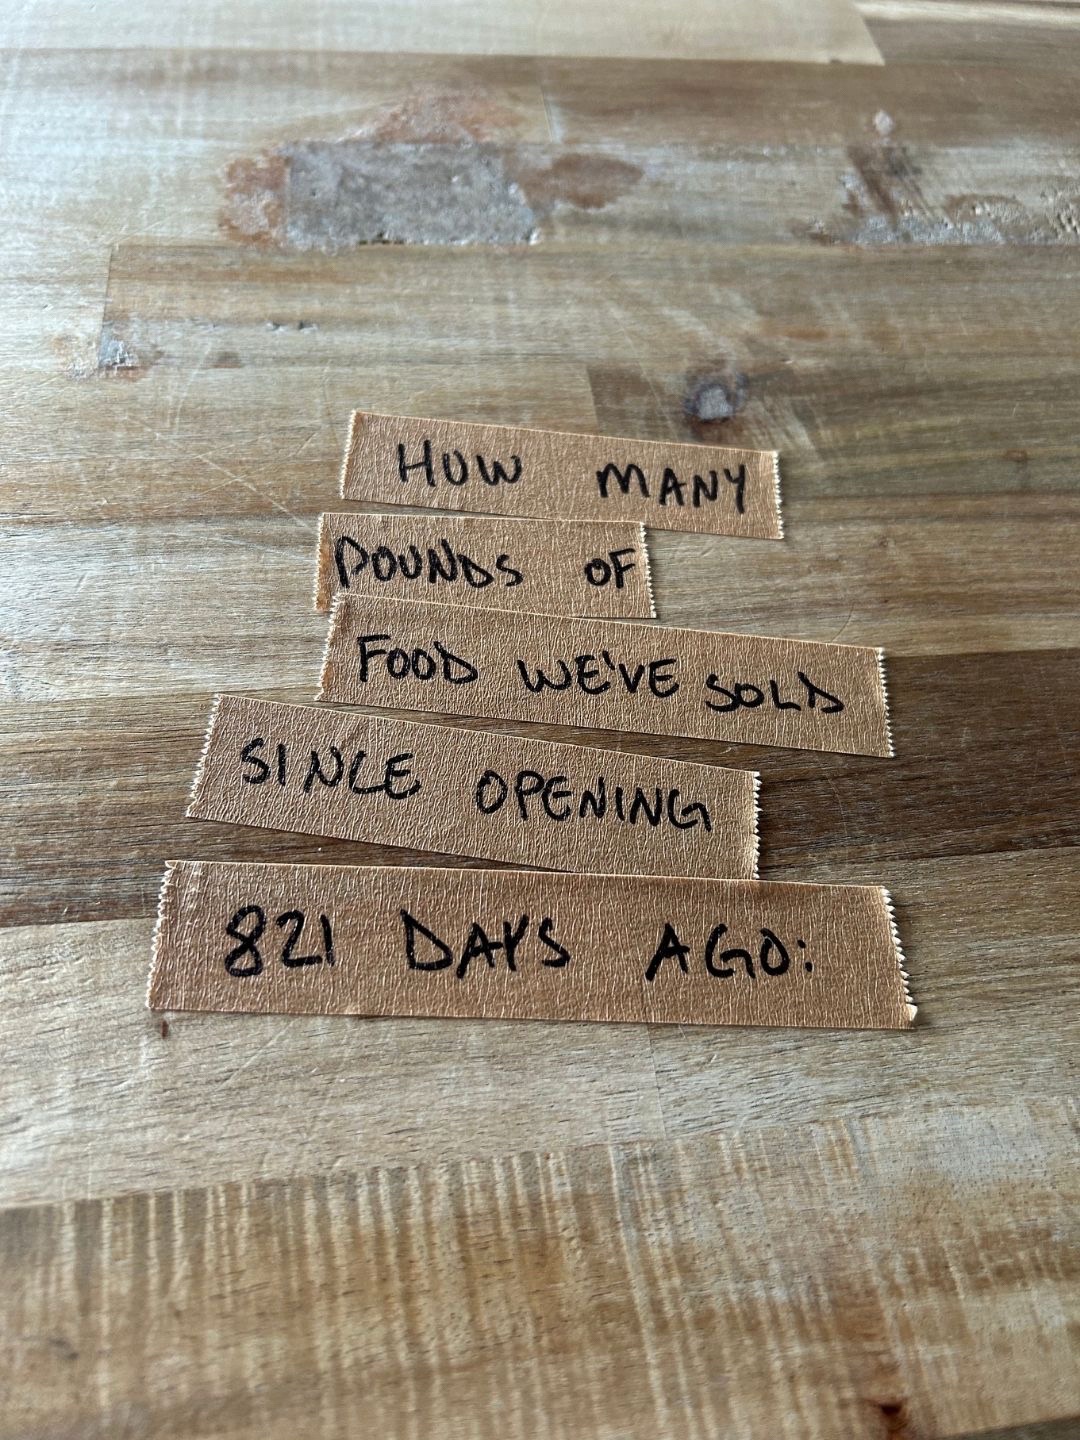 HOW MANY
POUNDS OF
FOOD WE'VE SOLD
SINCE OPENING
821 DAYS AGO: